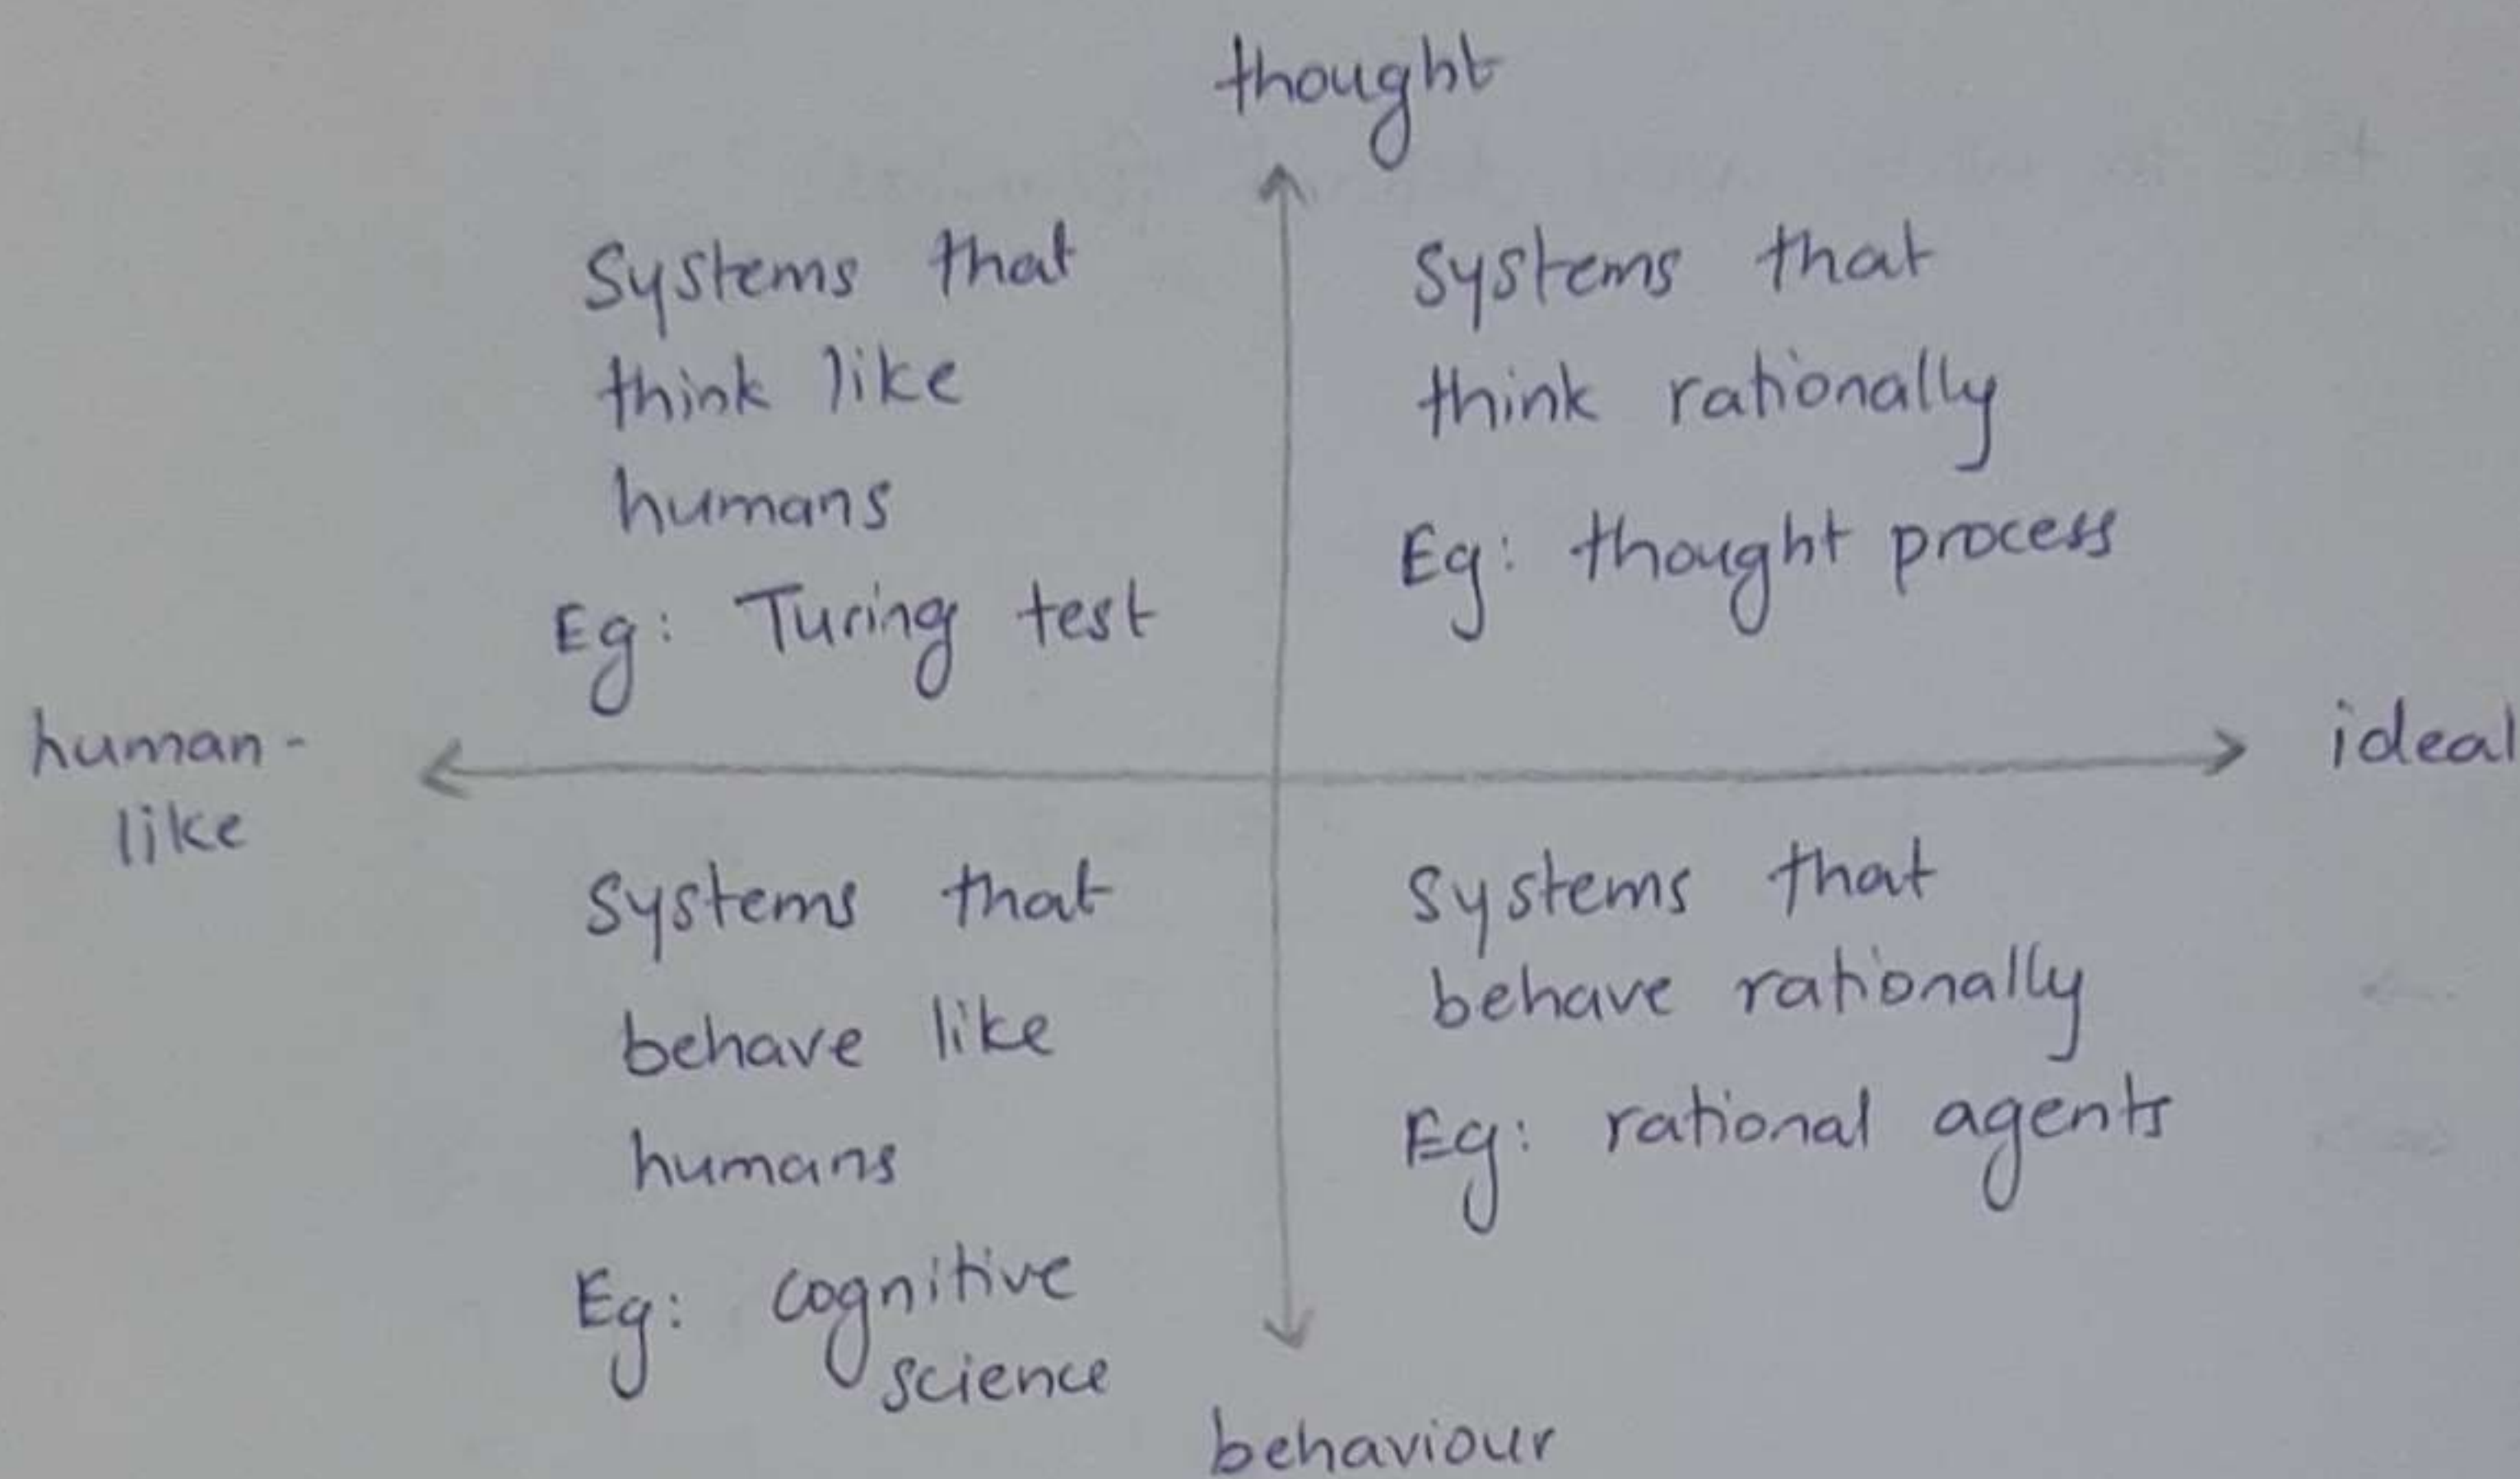 thought
Systems that
think like
humans
Eg: Turing test
Systems that
think rationally
Eg: thought process
human-
like
ideal
Systems that
behave like
humans
Eg: cognitive
science
Systems that
behave rationally
Eg: rational agents
behaviour